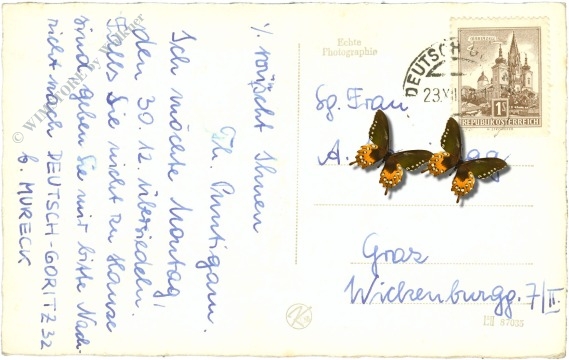 % wünscht Ihnen
Th. Puntigam.
Ich möchte Montag,
den 30.12. übersiedeln.
Falls Sie nicht zu Hause
sind geben Sie mir bitte Nach-
richt nach DEUTSCH-GORITZ 32
b. MURECK
© WIKITONE by Walkner
Echte
Photographie
DEUTSCH G
23.XII
MARIAZELL
1S
REPUBLIK ÖSTERREICH
Sg. Frau
A.
Graz
Wickenburgg. 7/II.
K
87035